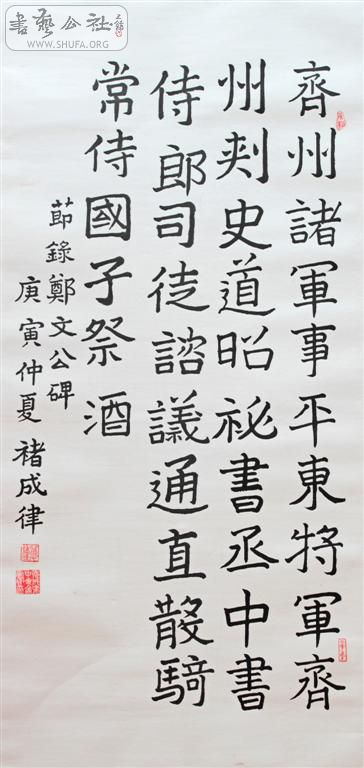 齊州諸軍事平東將軍齊
州刾史道昭祕書丞中書
侍郎司徒諮議通直散騎
常侍國子祭酒
莭錄鄭文公碑
庚寅仲夏 褚成律
書藝公社
WWW.SHUFA.ORG